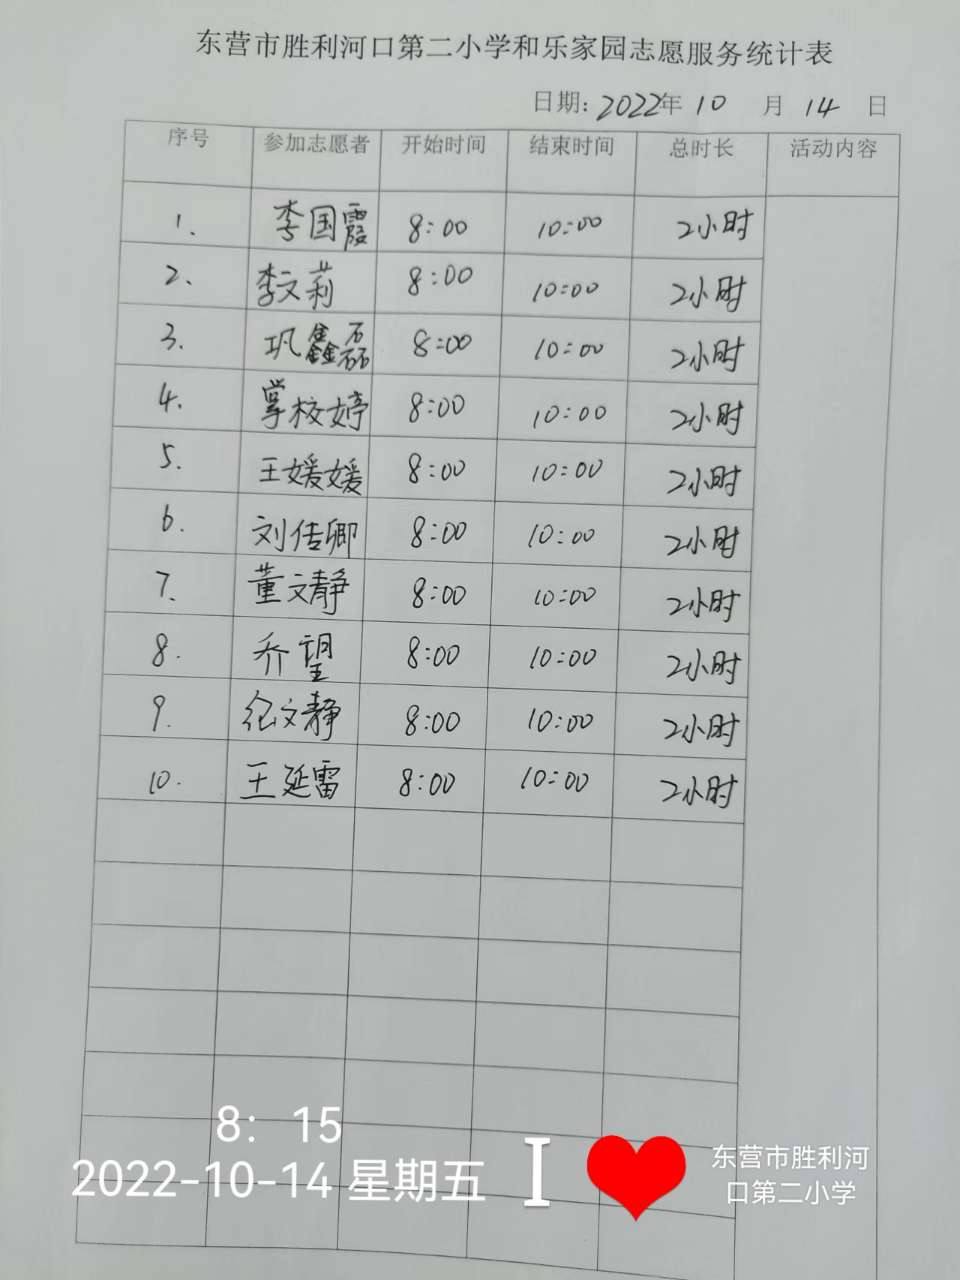 东营市胜利河口第二小学和乐家园志愿服务统计表
日期: 2022年 10 月 14 日
序号 参加志愿者 开始时间 结束时间 总时长 活动内容
1. 李国霞 8:00 10:00 2小时
2. 李文莉 8:00 10:00 2小时
3. 巩鑫磊 8:00 10:00 2小时
4. 掌校婷 8:00 10:00 2小时
5. 王媛媛 8:00 10:00 2小时
6. 刘传卿 8:00 10:00 2小时
7. 董文静 8:00 10:00 2小时
8. 乔望 8:00 10:00 2小时
9. 文静 8:00 10:00 2小时
10. 王延雷 8:00 10:00 2小时
8: 15
2022-10-14 星期五
I
东营市胜利河
口第二小学